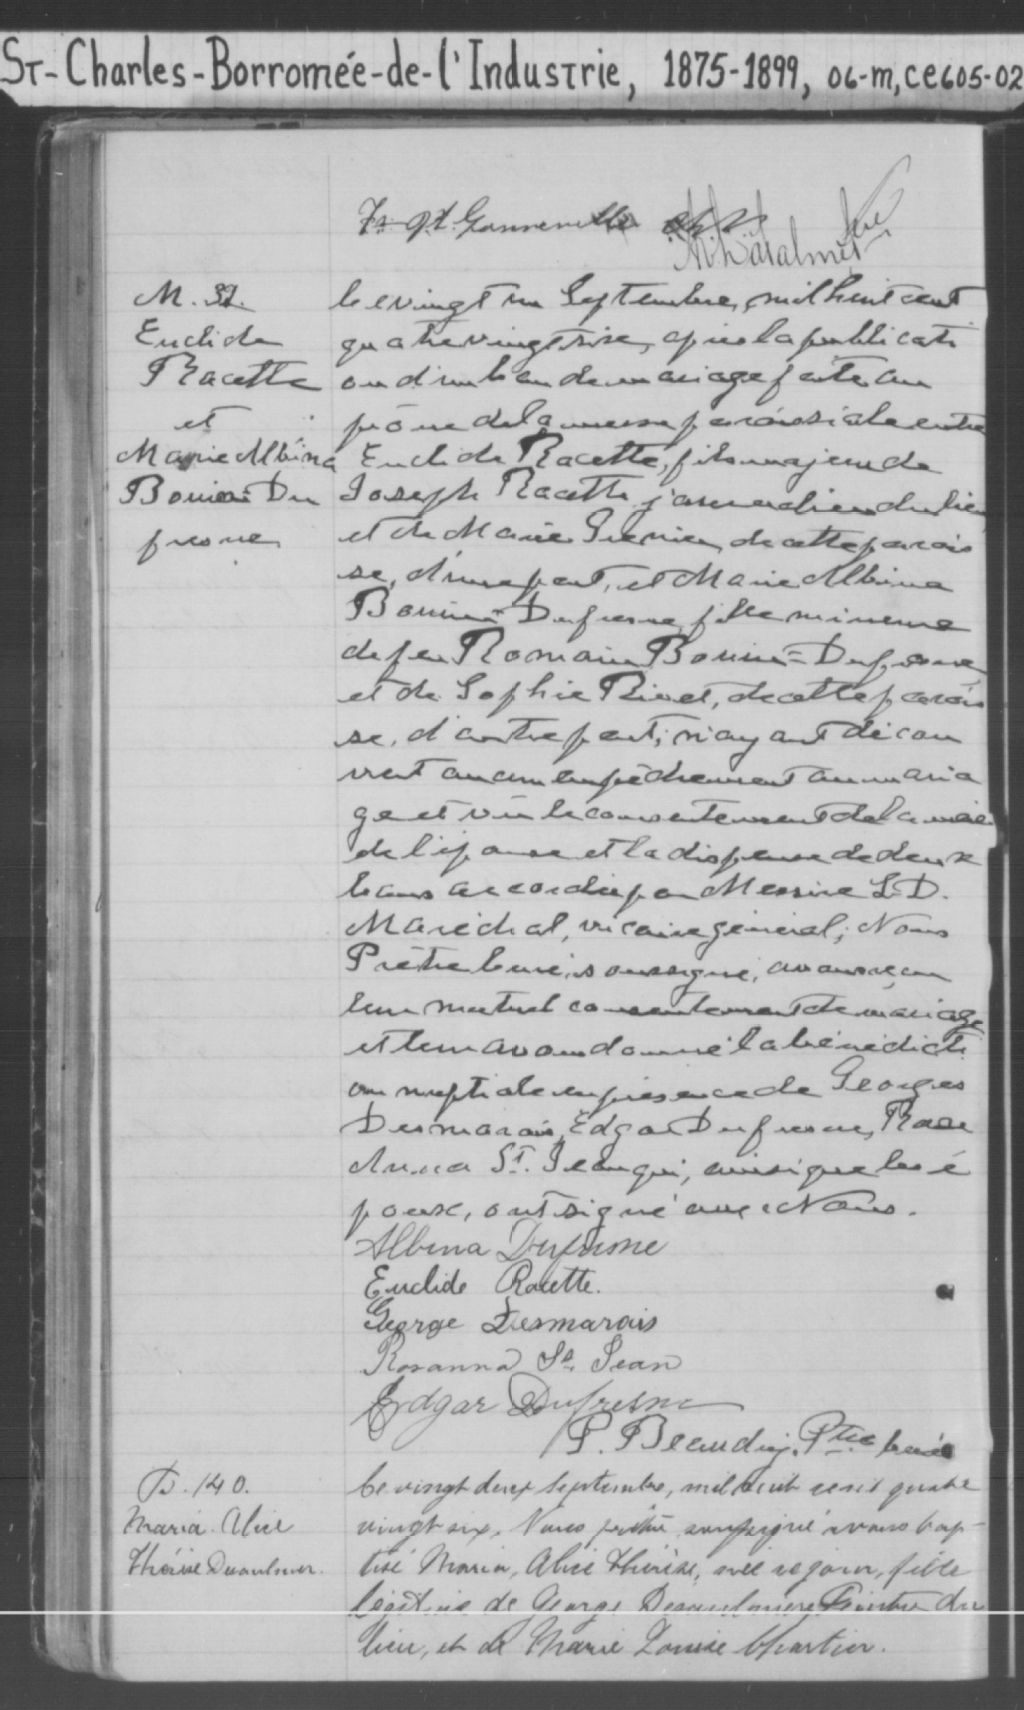 St-Charles-Borromée-de-l'Industrie, 1875-1899, 06-m, ce605-02
M. 32.
Euclide
Racette
et
Marie Albina
Bonin Du
fresne
Le vingt un Septembre, mil huit cent
quatrevingt six, après la publicati
on d'un ban de mariage faite au
prône de la messe paroissiale entre
Euclide Racette, fils majeur de
Joseph Racette, journalier du lieu
et de Marie Grenier, de cette parois
se, d'une part, et Marie Albina
Bonin-Dufresne, fille mineure
de feu Romain Bonin=Dufresne,
et de Sophie Rivet, de cette parois
se, d'autre part; n'ayant décou
vert aucun empêchement au maria
ge et vu le consentement de la mère
de l'épouse et la dispense de deux
bans accordée par Messire L.D.
Maréchal, vicaire général; Nous
Prêtre Curé, soussigné, avons reçu
leur mutuel consentement de mariage
et leur avons donné la bénédicti
on nuptiale en présence de Georges
Desmarais, Edgar Dufresne, Rose
Anna St. Jean qui, ainsi que les é
poux, ont signé avec Nous.
Albina Dufresne
Euclide Racette.
George Desmarais
Rosanna St. Jean
Edgar Dufresne
P. Beaudry, Ptre Curé
B. 140.
Maria. Alice
Thérèse
Le vingt deux Septembre, mil huit cent quatre
vingt six, Nous prêtre soussigné avons bap-
tisé Maria, Alice Thérèse, née ce jour, fille
légitime de George Peintre du
lieu, et de Marie Louise Chartier.